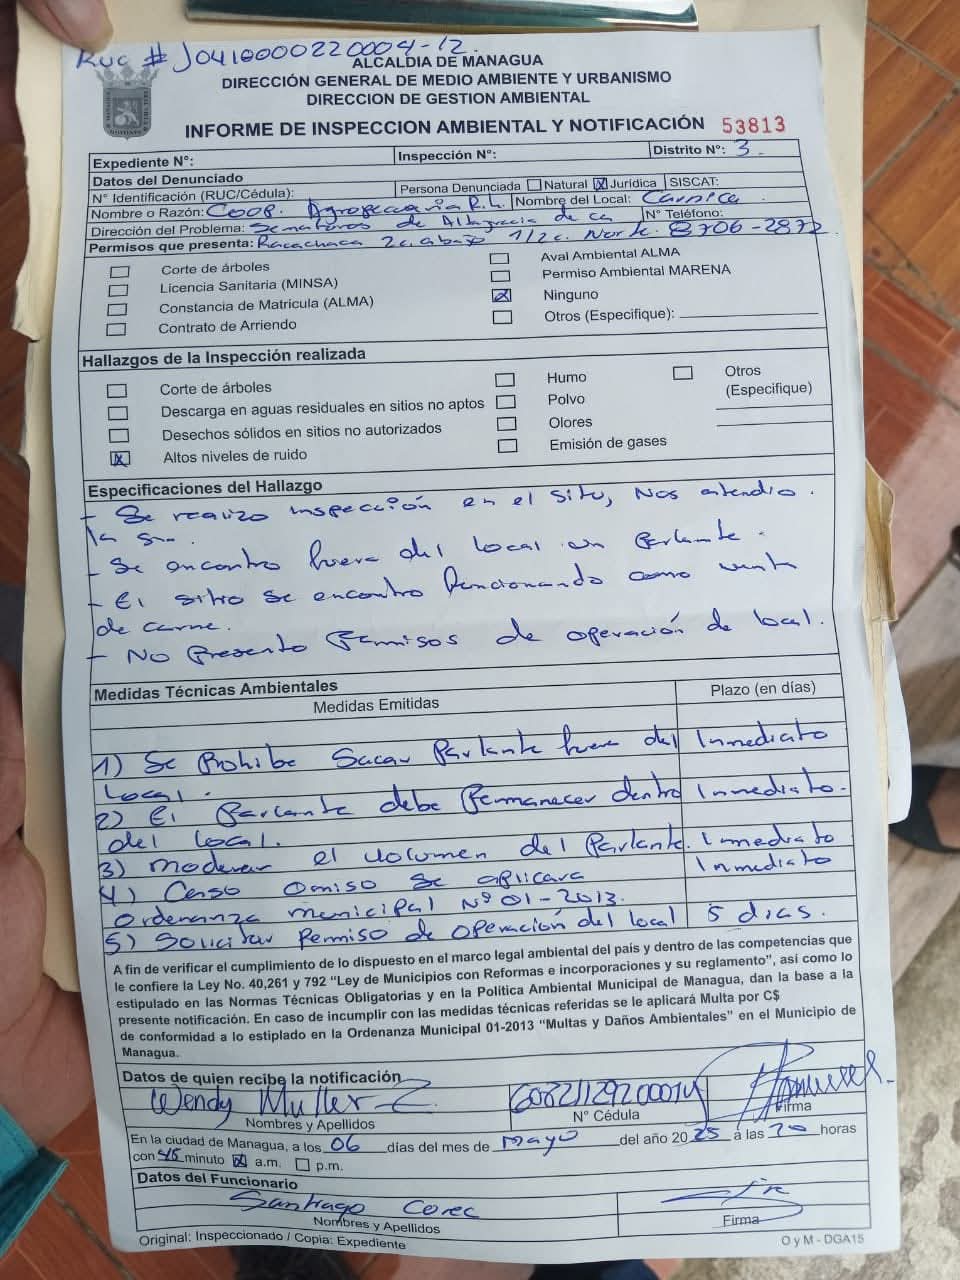 RUC # J0410000220004-12.
ALCALDIA DE MANAGUA
DIRECCIÓN GENERAL DE MEDIO AMBIENTE Y URBANISMO
DIRECCION DE GESTION AMBIENTAL
INFORME DE INSPECCION AMBIENTAL Y NOTIFICACIÓN 53813
Expediente N°: Inspección N°: Distrito N°: 3.
Datos del Denunciado
N° Identificación (RUC/Cédula): Persona Denunciada Natural X Jurídica SISCAT:
Nombre o Razón: Coop. Agropecuaria R.L. Nombre del Local: Carnica
Dirección del Problema: Semaforos de Altagracia de ca N° Teléfono:
Permisos que presenta: Racachaca 2c. abajo 1/2c. Norte. 8706-2872
Corte de árboles Aval Ambiental ALMA
Licencia Sanitaria (MINSA) Permiso Ambiental MARENA
Constancia de Matricula (ALMA) X Ninguno
Contrato de Arriendo Otros (Especifique):
Hallazgos de la Inspección realizada
Corte de árboles Humo Otros
Descarga en aguas residuales en sitios no aptos Polvo (Especifique)
Desechos sólidos en sitios no autorizados Olores
X Altos niveles de ruido Emisión de gases
Especificaciones del Hallazgo
- Se realizo inspección en el sitio, Nos atendio.
la sra.
- Se encontro fuera del local un Parlante.
- El sitio se encontro funcionando como venta
de carne.
- No Presento Permisos de operación de local.
Medidas Técnicas Ambientales
Medidas Emitidas Plazo (en días)
1) Se Prohibe Sacar Parlante fuera del Inmediato
Local.
2) El Parlante debe Permanecer dentro Inmediato.
del local.
3) moderar el volumen del Parlante. Inmediato
4) Caso Omiso se aplicara Inmediato
Ordenanza municipal Nº 01-2013.
5) Solicitar Permiso de operación del local 5 dias.
A fin de verificar el cumplimiento de lo dispuesto en el marco legal ambiental del país y dentro de las competencias que
le confiere la Ley No. 40,261 y 792 "Ley de Municipios con Reformas e incorporaciones y su reglamento", así como lo
estipulado en las Normas Técnicas Obligatorias y en la Política Ambiental Municipal de Managua, dan la base a la
presente notificación. En caso de incumplir con las medidas técnicas referidas se le aplicará Multa por C$
de conformidad a lo estiplado en la Ordenanza Municipal 01-2013 "Multas y Daños Ambientales" en el Municipio de
Managua.
Datos de quien recibe la notificación
Wendy Muller Z.
Nombres y Apellidos N° Cédula Firma
En la ciudad de Managua, a los 06 días del mes de mayo del año 2025 a las horas
con 45 minuto X a.m. p.m.
Datos del Funcionario
Santiago Cerec
Nombres y Apellidos Firma
Original: Inspeccionado / Copia: Expediente O y M - DGA15